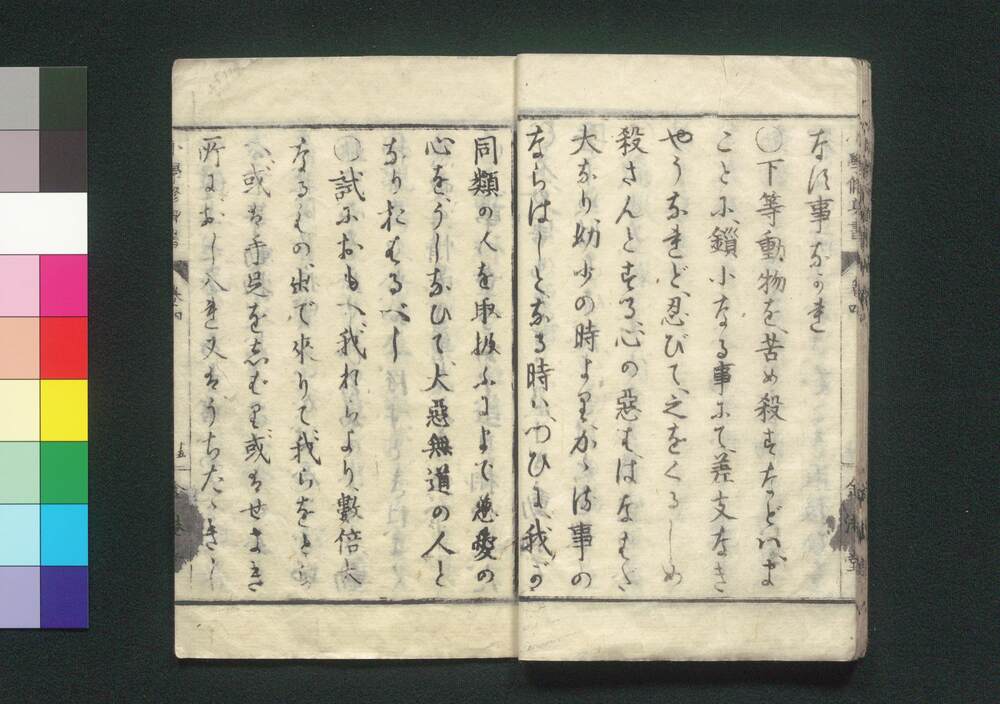 なす事なかれ
〇下等動物を、苦め殺すなどハ、ま
ことに、鎖小なる事にて、差支なき
やうなれど、忍びて、之をくるしめ
殺さんとする、心の惡きはなはだ
大なり、幼少の時より、かゝる事の
ならはしとなる時ハ、つひに我が
同類の人を取扱ふにまで慈愛の
心を、うしなひて、大惡無道の人と
なりおはるべし
〇試におもへ、我れらより、數倍大
なるもの、出で來りて、我らをとら
へ、或は手足をしむり、或はせまき
所におし入れ又はうちたゝき
小學修身書 巻四